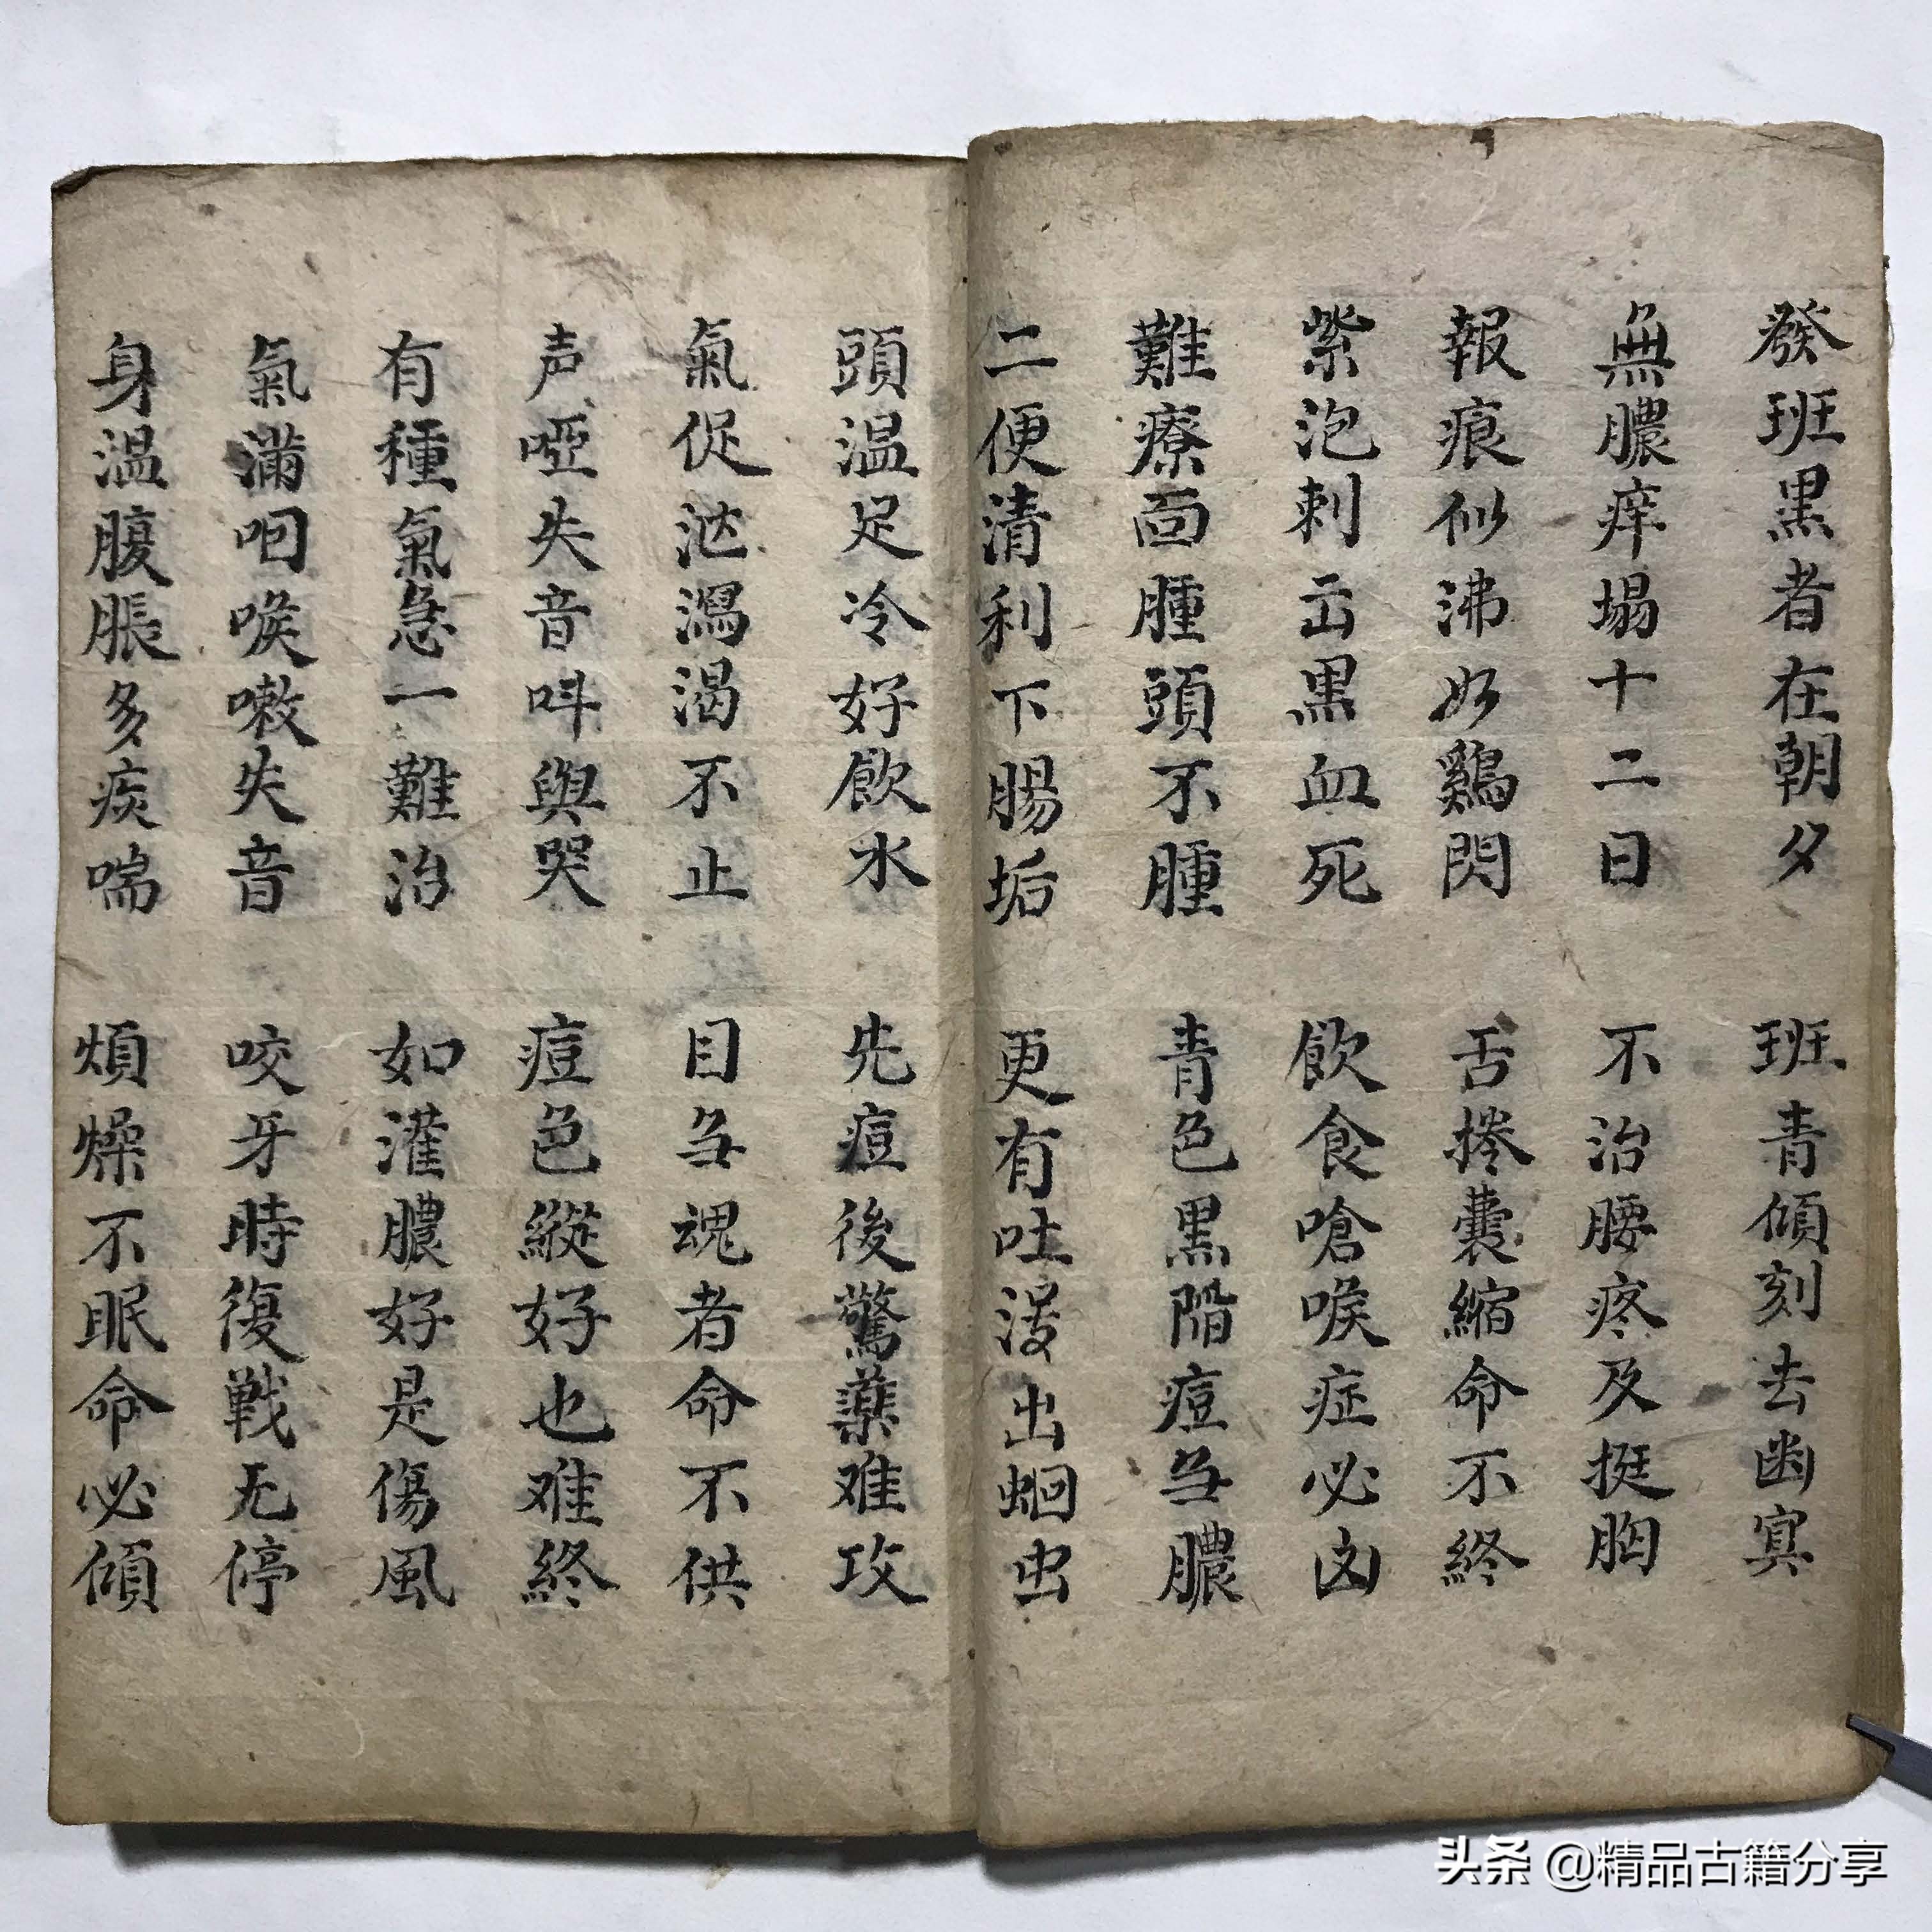 發班黑者在朝夕 班青傾刻去幽冥
無膿痒塌十二日 不治腰疼及挺胸
報痕似沸如鷄閃 舌捲囊縮命不終
紫泡刺出黒血死 飲食嗆喉症必凶
難療面腫頭不腫 青色黒陷痘多膿
二便清利下腸垢 更有吐沒出蛔虫
頭温足冷好飲水 先痘後驚藥难攻
氣促泄瀉渴不止 目多魂者命不供
声啞失音呌與哭 痘色縱好也难終
有種氣急一難治 如灌膿好是傷風
氣滿咽喉嗽失音 咬牙時復戦无停
身温腹脹多痰喘 煩燥不眠命必傾
头条 @精品古籍分享